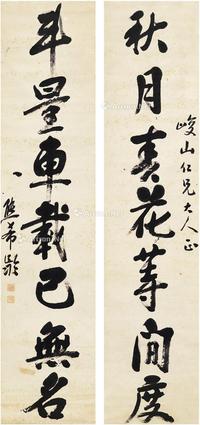 秋月春花等閒度
峻山仁兄大人正
斗量車載已無名
熊希齡